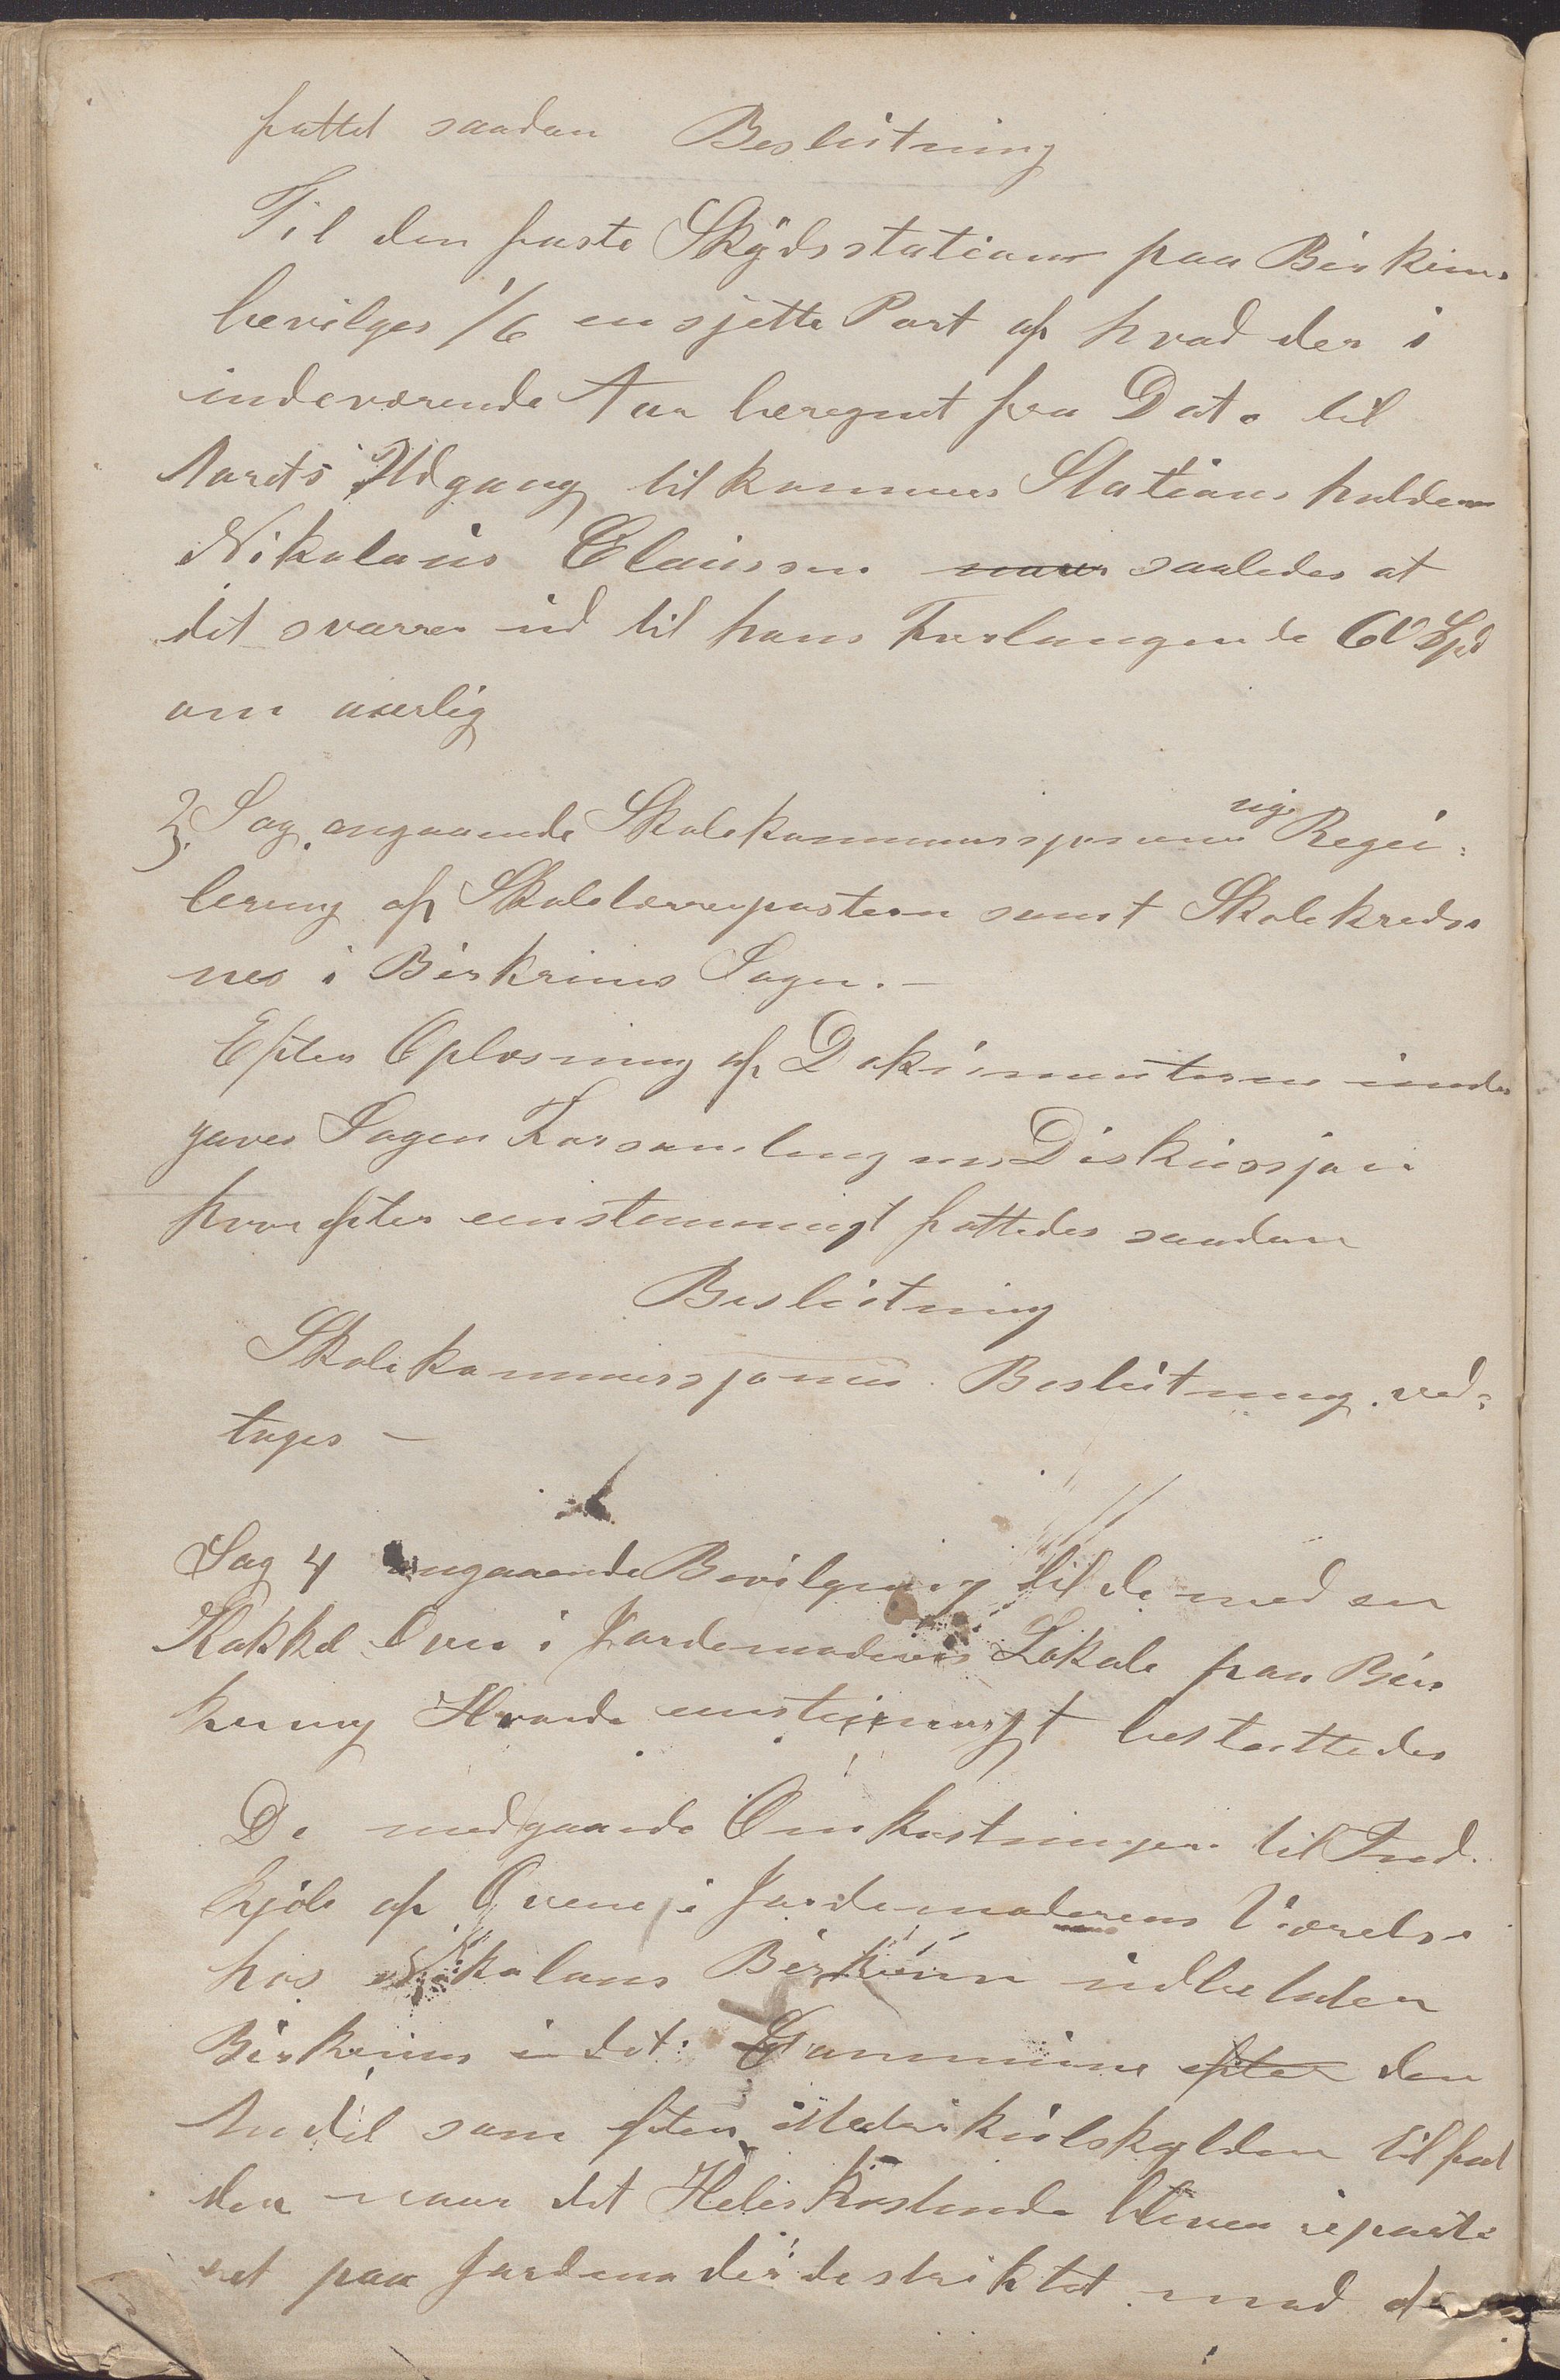 fattet saadan Beslutning
Til den faste Skydsstation paa Birkrim
bevilges 1/6 en sjette Part af hvad der i
indeværende Aar beregnet fra Dato til
Aarets Udgang tilkommer Stationsholder
Nikolaus Clausen naar saaledes at
det svarer ud til hans Forlangende 60 Spd
om aarlig
3. Sag angaaende Skolekommissjonens Regu:
lering af Skolelærerposten samt Skolekreds
nes i Birkrims Sogn. –
Efter Oplæsning af Dokumenterne under
gaves Sagen Forsamlingens Diskussjon
hvorefter enstemmigt fattedes saadan
Beslutning
Skolekommissjonens Beslutning ved:
tages –
Sag 4 angaaende Bevilgning til de med en
Kakkel Ovn i Jordemoderens Lokale paa Bir
krim Hvorda enstemmigt besluttedes
De medgaaende Omkostninger til Ind
kjöb af Ovene i Jordemoderens Værelse
hos Nikolaus Birkrim udbetaler
Birkrims i det Kommune efter den
Andel som efter Matrikulskylden tilfal
der naar det Hele Kostende bliver reparti
ret paa Jordemoderdestriktet med